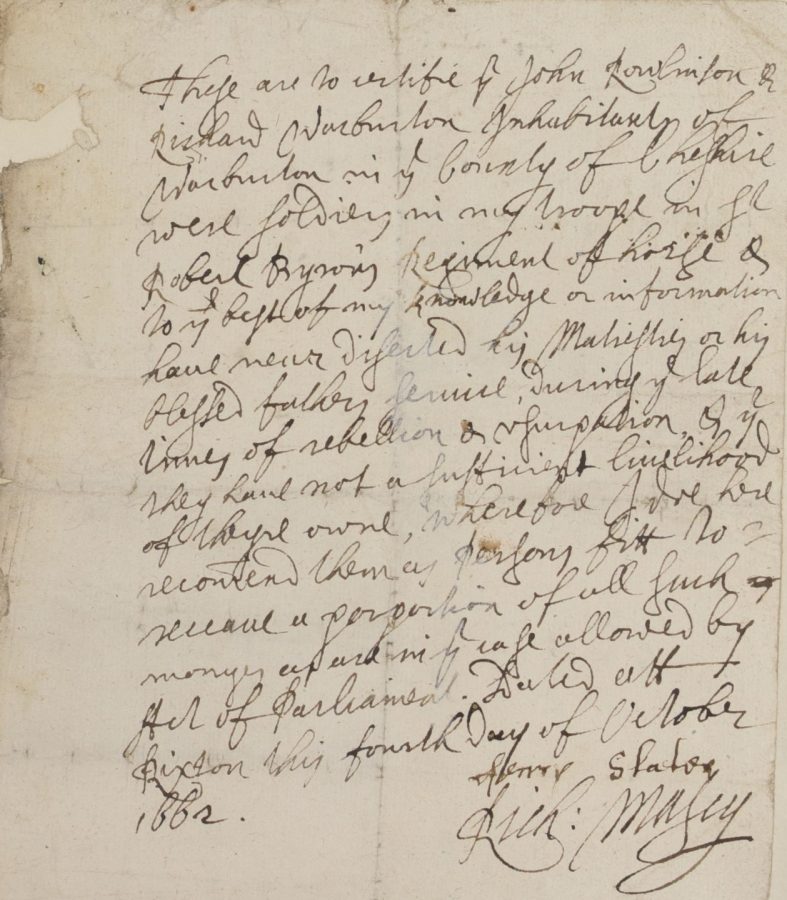 These are to certifie yt John Rowlinson &
Richard Warburton Inhabitants of
Warburton in ye County of Cheshire
were soldiers in my troope in Sr
Robert Byrons Regiment of horse &
to ye best of my knowledge or information
have never diserted his Maiesties or his
blessed fathers service, during ye late
times of rebellion & usurpation, & yt
they have not a sufficient livelihood
of theyre owne, wherefore I doe here
recomend them as persons fitt to
receave a porportion of all such
moneys as are in yt case allowed by
Act of Parliament. Dated att
Rixton this fourth Day of October
1662.
Slater
Rich: Massy